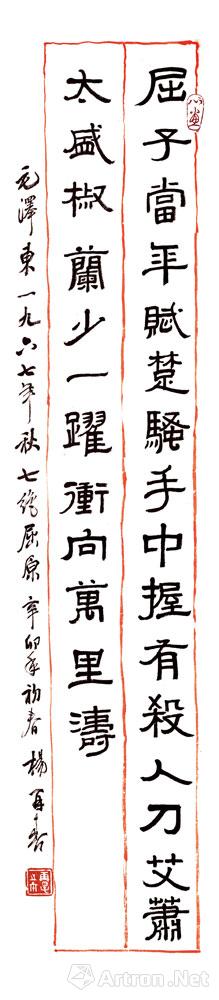 屈子當年賦楚騷手中握有殺人刀艾蕭
太盛椒蘭少一躍衝向萬里濤
毛澤東一九六七年秋七絕屈原辛卯年初春楊再春
心畫
Artron.Net